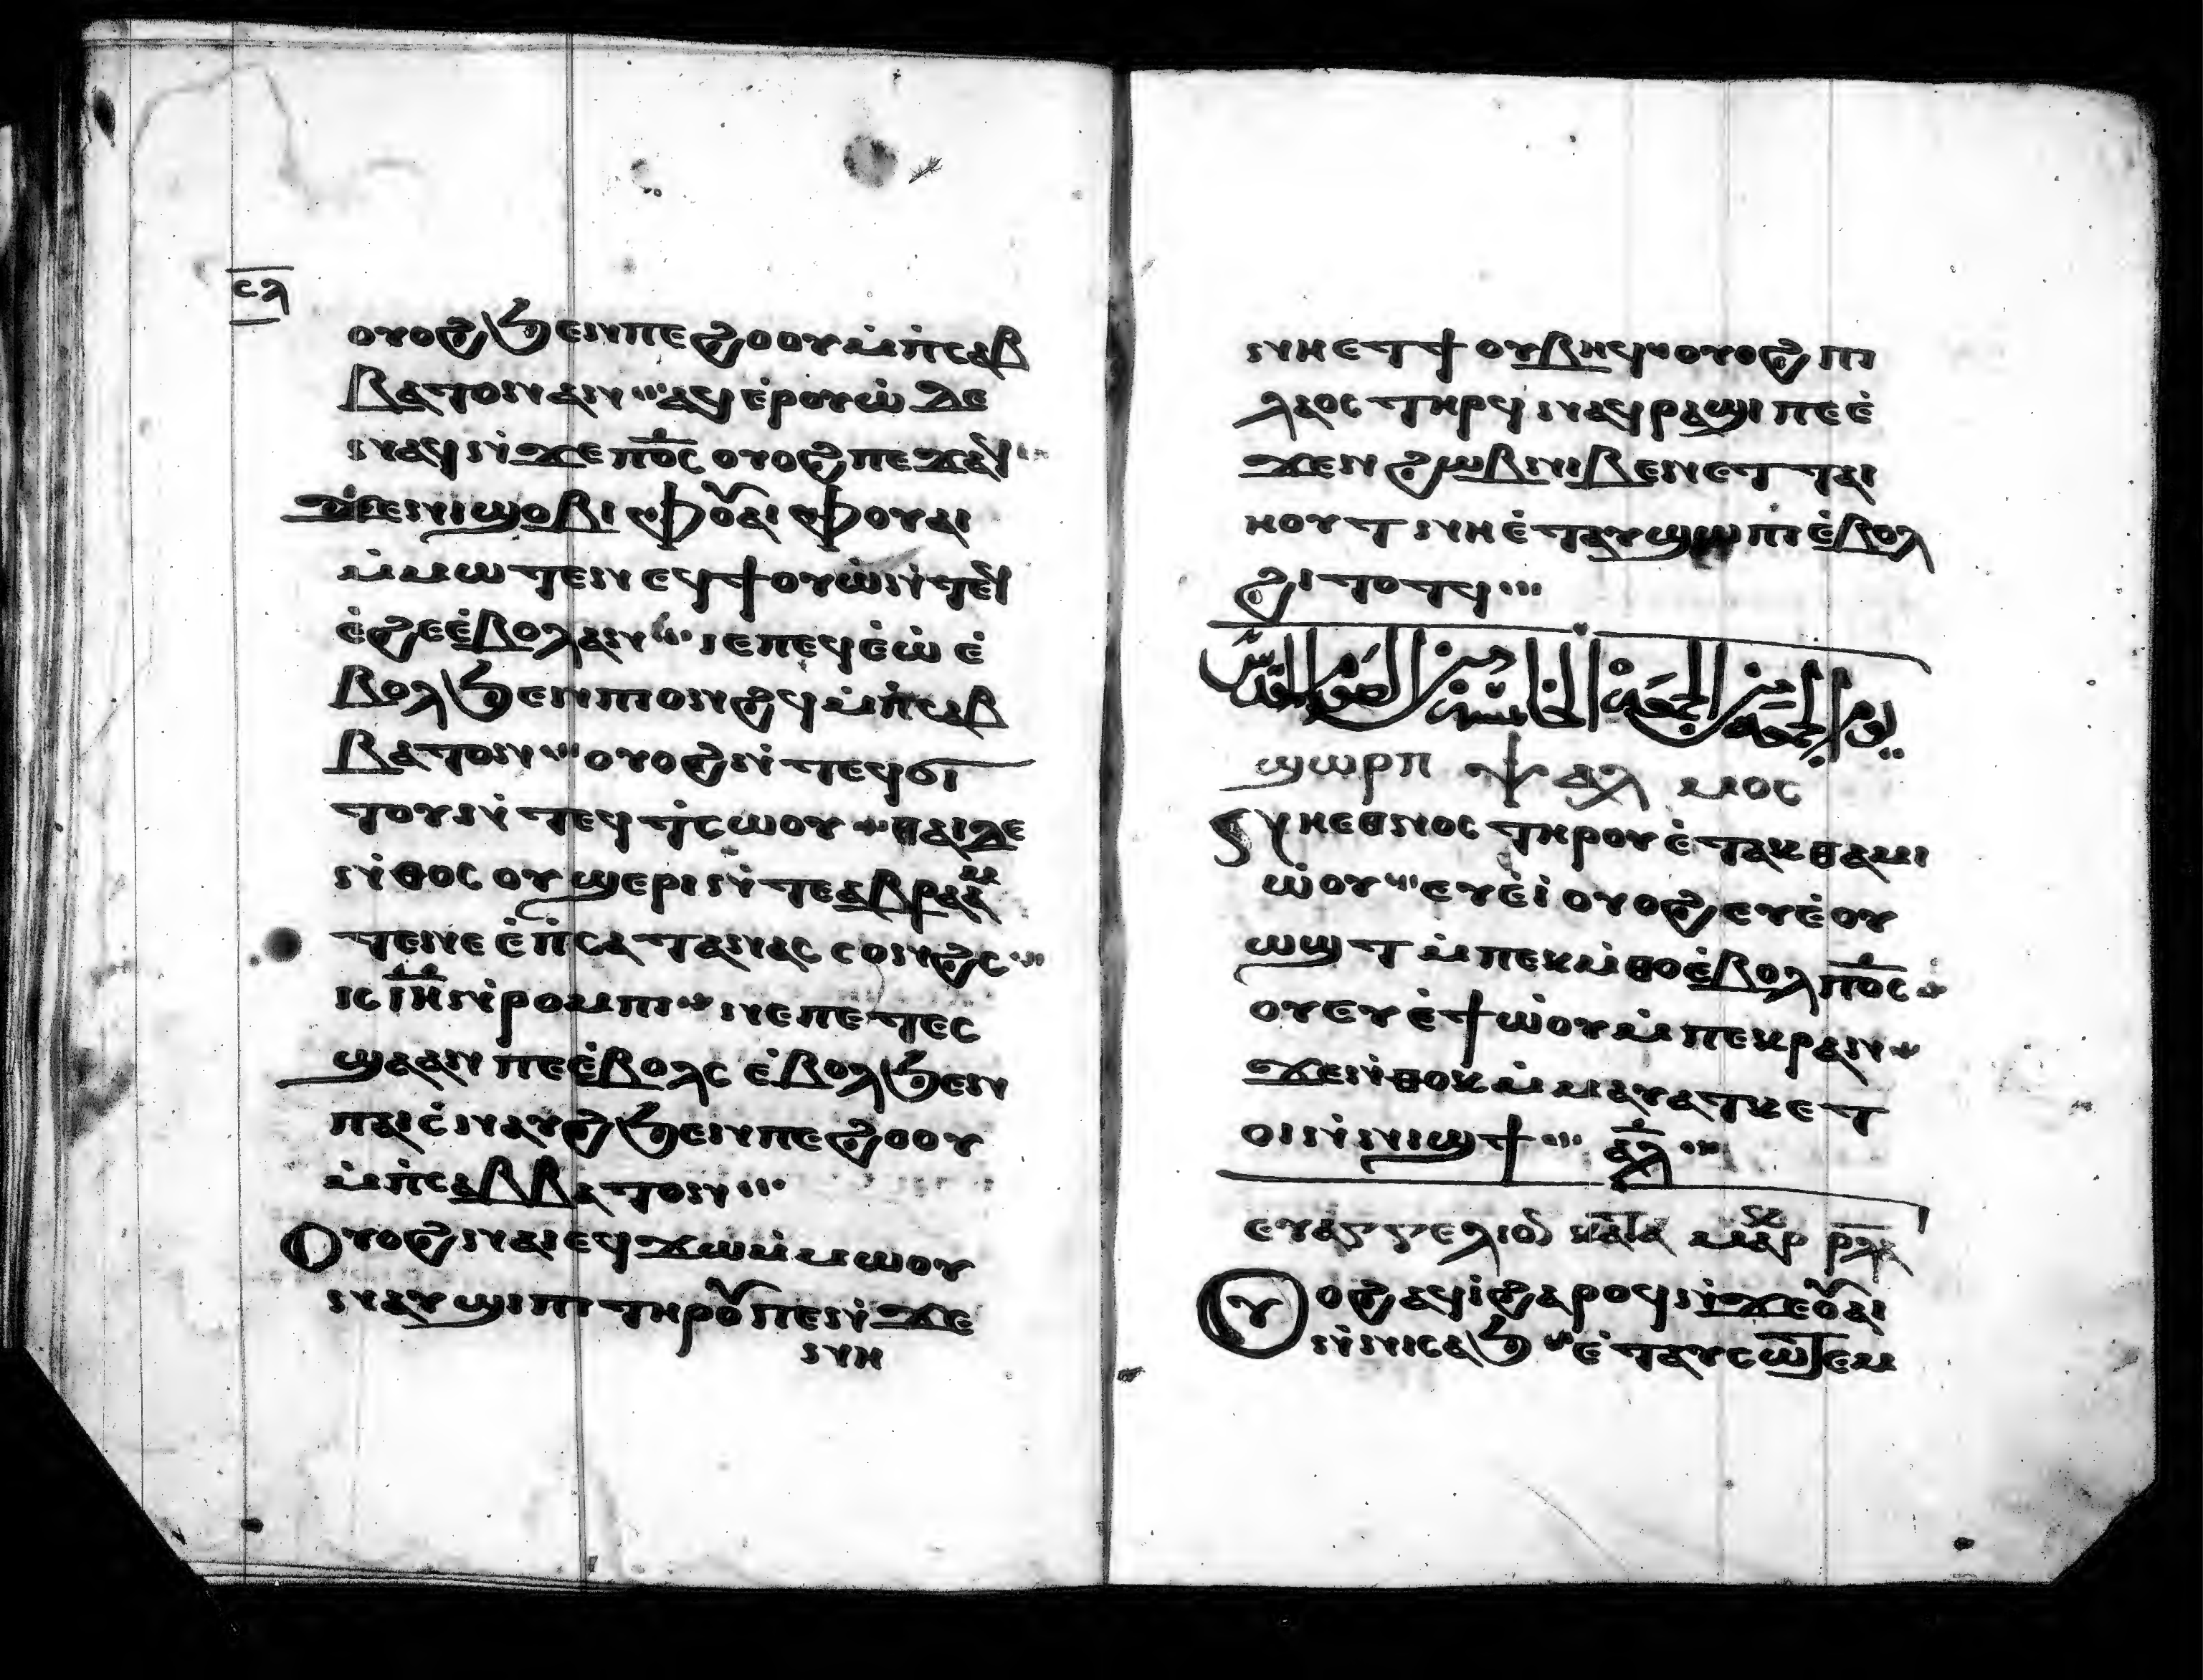 ⲥⲗ
ⲟⲩⲟϩ ϧⲉⲛ ⲡⲉϩⲟⲟⲩ ⲙ̇ⲡ̇ⲥⲁⲃ
ⲃⲁⲧⲟⲛ ⲁⲛ ⲁϥⲉ̇ⲣⲟⲩⲱ̇ ⲇⲉ
ⲛⲁϥ ⲛ̇ϫⲉ ⲡ̅ⲟ̅ⲥ̅ ⲟⲩⲟϩ ⲡⲉϫⲁϥ
ϫⲉ ⲛⲓϣⲟⲃⲓ ⲫⲟⲩⲁⲓ ⲫⲟⲩⲁⲓ
ⲙ̇ⲙⲱⲧⲉⲛ ⲉϥϯⲟⲩⲱ ⲛ̇ⲧⲉϥ
ⲉ̇ϩⲉ ⲉ̇ⲃⲟⲗ ⲁⲛ ⲓⲉ ⲡⲉϥⲉ̇ⲱ̇ ⲉ̇
ⲃⲟⲗ ϧⲉⲛ ⲡⲓⲟⲛϩϥ ⲙ̇ⲡ̇ⲥⲁⲃ
ⲃⲁⲧⲟⲛ ⲟⲩⲟϩ ⲛ̇ⲧⲉϥϭⲓ
ⲧⲟⲩ ⲛ̇ⲧⲉϥⲧ̇ⲥⲱⲟⲩ ⲑⲁⲓ ⲇⲉ
ⲛ̇ⲑⲟⲥ ⲟⲩϣⲉⲣⲓ ⲛ̇ⲧⲉ ⲁⲃⲣⲁⲁⲙ
ⲧⲉ ⲛⲉ ⲉ̇ⲡ̇ⲥⲁⲧⲁⲛⲁⲥ ⲥⲟⲛϩⲥ
ⲓⲥ ⲓ̅ⲏ̅ ⲛ̇ⲣⲟⲙⲡⲓ ⲛⲉ ⲡⲉⲧⲉⲥ
ϣⲁⲁⲛ ⲡⲉ ⲉ̇ⲃⲟⲗⲥ ⲉ̇ⲃⲟⲗ ϧⲉⲛ
ⲡⲁⲓⲥ̇ⲛⲁⲩϩ ϧⲉⲛ ⲡⲉϩⲟⲟⲩ
ⲙ̇ⲡ̇ⲥⲁⲃⲃⲁⲧⲟⲛ
Ⲟⲩⲟϩ ⲛⲁⲓ ⲉϥϫⲱ ⲙ̇ⲙⲱⲟⲩ
ⲛⲁⲩϣⲓⲡⲓ ⲧⲏⲣⲟⲩ ⲡⲉ ⲛ̇ϫⲉ
ⲛⲏ
ⲛⲏ ⲉⲧϯ ⲟⲩⲃⲏϥ ⲟⲩⲟϩ ⲡⲓ
ⲗⲁⲟⲥ ⲧⲏⲣϥ ⲛⲁϥⲣⲁϣⲓ ⲡⲉ ⲉ̇
ϫⲉⲛ ϩⲱⲃ ⲛⲓⲃⲉⲛ ⲉⲧⲧⲁⲓ
ⲏⲟⲩⲧ ⲛⲏ ⲉ̇ⲧⲁⲩϣⲱⲡⲓ ⲉ̇ⲃⲟⲗ
ϩⲓⲧⲟⲧϥ
يوم الجمعة من الجمعة الخامسة من الصوم المقدس
ϣⲱⲣⲡ ⲯⲁⲗⲙⲟⲥ
Ⲛⲏⲉⲑⲛⲟⲥ ⲧⲏⲣⲟⲩ ⲉ̇ⲧⲁⲕⲑⲁⲙⲓ
ⲱ̇ⲟⲩ ⲉⲩⲉ̇ⲓ̇ ⲟⲩⲟϩ ⲉⲩⲉ̇ⲟⲩ
ⲱϣⲧ ⲙ̇ⲡⲉⲕⲙ̇ⲑⲟ ⲉ̇ⲃⲟⲗ ⲡ̅ⲟ̅ⲥ̅
ⲟⲩ ⲉⲩⲉ̇ϯⲱ̇ⲟⲩ ⲙ̇ⲡⲉⲕⲣⲁⲛ
ϫⲉ ⲛ̇ⲑⲟⲕ ⲙ̇ⲙⲁⲩⲁⲧⲕ ⲉⲧ
ⲟⲓ ⲛ̇ⲛⲓϣϯ ⲁ̅ⲗ̅
ⲉⲩⲁⲅⲅⲉⲗⲓⲟⲛ ⲕⲁⲧⲁ ⲙⲁⲣ ⲣⲗⲁ
Ⲟⲩⲟϩ ⲁϥⲓ̇ ϩⲁⲣⲟϥ ⲛ̇ϫⲉ ⲟⲩⲁⲓ
ⲛ̇ⲛⲓⲥⲁϧ ⲉ̇ⲧⲁⲩⲥⲱⲧⲉⲙ